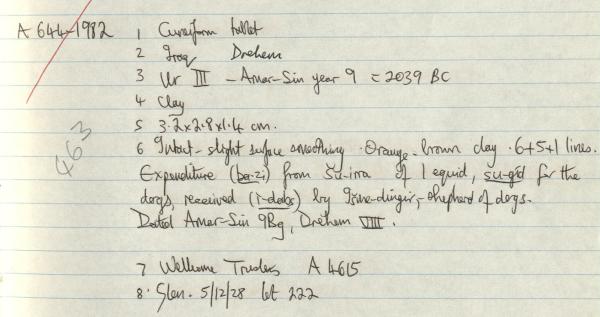 A 644-1982 1 Cuneiform tablet
2 Iraq Drehem
3 Ur III - Amar-Sin year 9 = 2039 BC
4 Clay
5 3.2 x 2.8 x 1.4 cm.
6 Intact - slight surface smoothing. Orange-brown clay. 6+5+1 lines.
Expenditure (ba-zi) from Šu-irra of 1 equid, su-gid for the
dogs, received (i-dab5) by shepherd of dogs.
Dated Amar-Sin 9Bg, Drehem VIII.
463
7 Wellcome Trustees A 4615
8. Stev. 5/12/28 lot 222